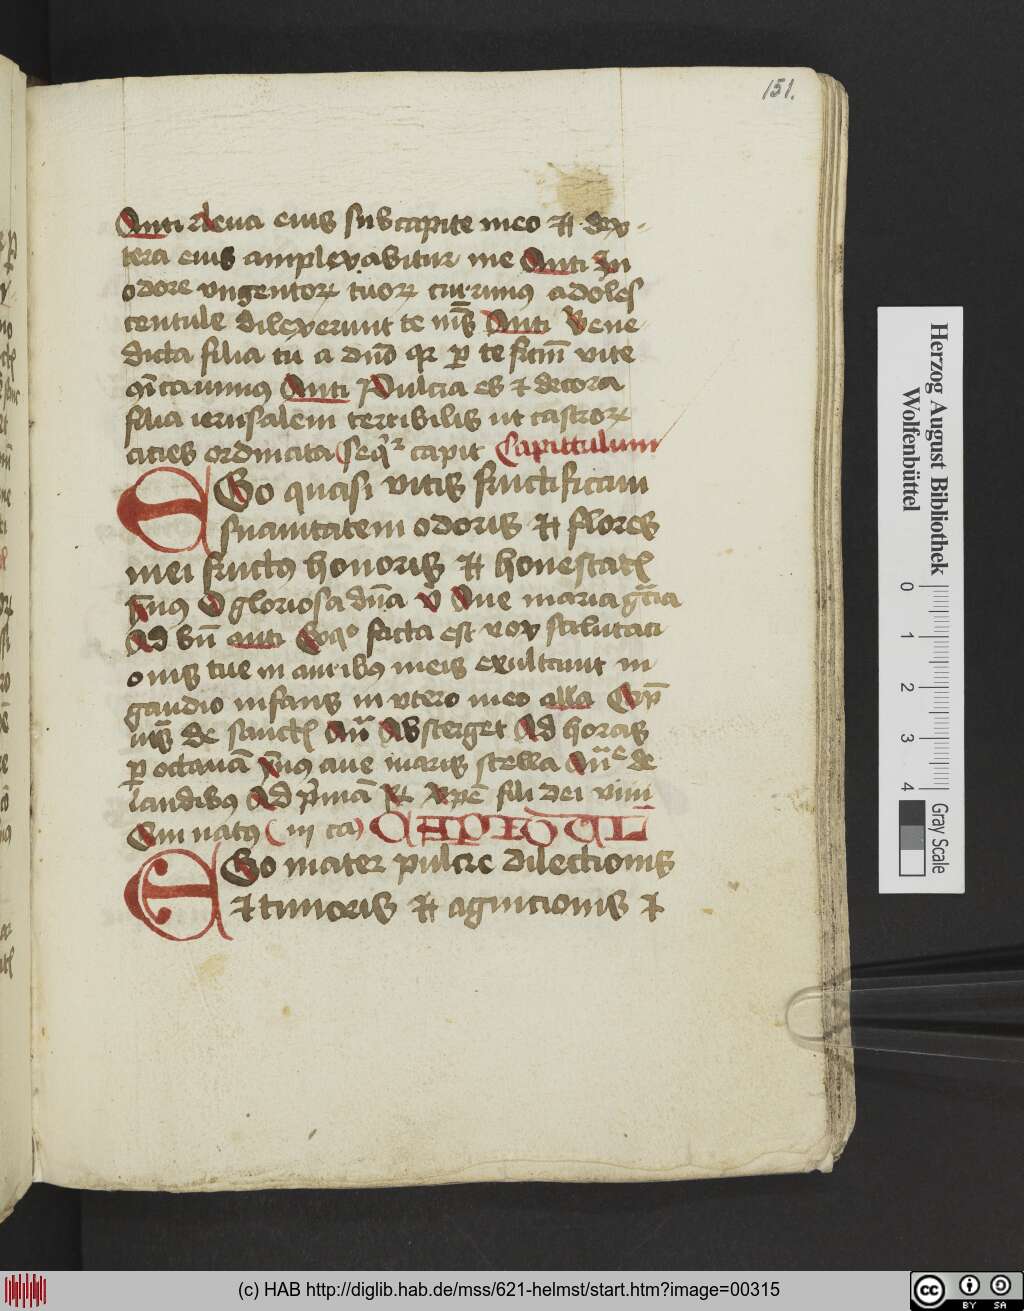 151.
Anti Leua eius sub capite meo et dex-
tera eius amplexabitur me Anti In
odore vngentoꝝ tuoꝝ curimus adoles
centule dilexerunt te nīs Anti Bene
dicta filia tu a dn̄o qr ꝑ te fructū vite
cōicauimus Anti Pulcra es et decora
filia ierusalem terribilis ut castroꝝ
acies ordinata seqr capit Capittulum
EGo quasi vitis fructificaui
suauitatem odoris et flores
mei fructus honoris et honestatis
ymnus O gloriosa dn̄a v Aue maria gr̄cia
Ad bn̄ anti Ecce facta est vox salutaci
onis tue in auribus meis exultauit in
gaudio infans in vtero meo alla
de sanctis An̄ Absterget Ad horas
ꝑ octauā ymnus aue maris stella An̄e de
laudibus Ad pͥmā Rx xpē fili dei viui
Qui natus in ca CAPITVL
EGo mater pulcre dilectionis
et timoris et agnicionis et
Herzog August Bibliothek
Wolfenbüttel
0 1 2 3 4
Gray Scale
(c) HAB http://diglib.hab.de/mss/621-helmst/start.htm?image=00315
cc BY SA